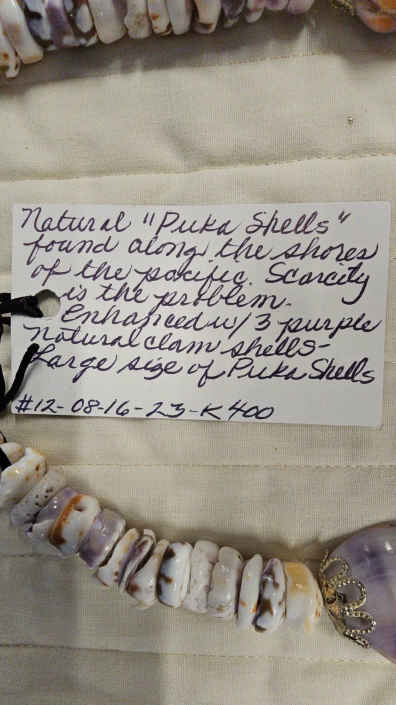 Natural "Puka Shells"
found along the shores
of the pacific. Scarcity
is the problem.
Enhanced w/3 purple
natural clam shells-
Large size of Puka Shells
#12-08-16-23-K400